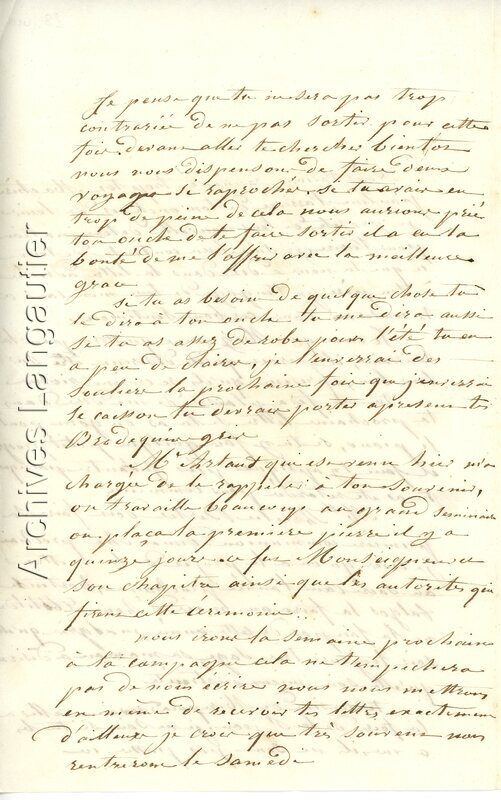 Je pense que tu ne sera pas trop
contrariée de ne pas sortir pour cette
fois devant aller te chercher bientot
nous nous dispensons de faire deux
voyages si raprochés, se tu avais eu
trop de peine de cela nous aurions prié
ton oncle de te faire sortir il a eu la
bonté de me l'offrir avec la meilleure
grace
si tu as besoin de quelque chose tu
le dira à ton oncle tu me dira aussi
si tu as assez de robe pour l'été tu en
a peu de claires, je t'enverrai des
souliers la prochaine fois que j'enverrai
le caisson tu devrais porter apresent tes
Brodequins gris
Mr Artaud qui est venu hier m'a
chargée de le rappeler à ton souvenir,
on travaille beaucoup au grand seminaire
on plaça la première pierre il y a
quinze jours ce fut Monseigneur et
son chapitre ainsi que les autorités qui
firent cette ceremonie
nous irons la semaine prochaine
à la campagne cela ne t'empechera
pas de nous écrire nous nous mettrons
en même de recevoir tes lettres exactement
d'ailleurs je crois que très souvent nous
rentrerons le samedi
Archives Langautier